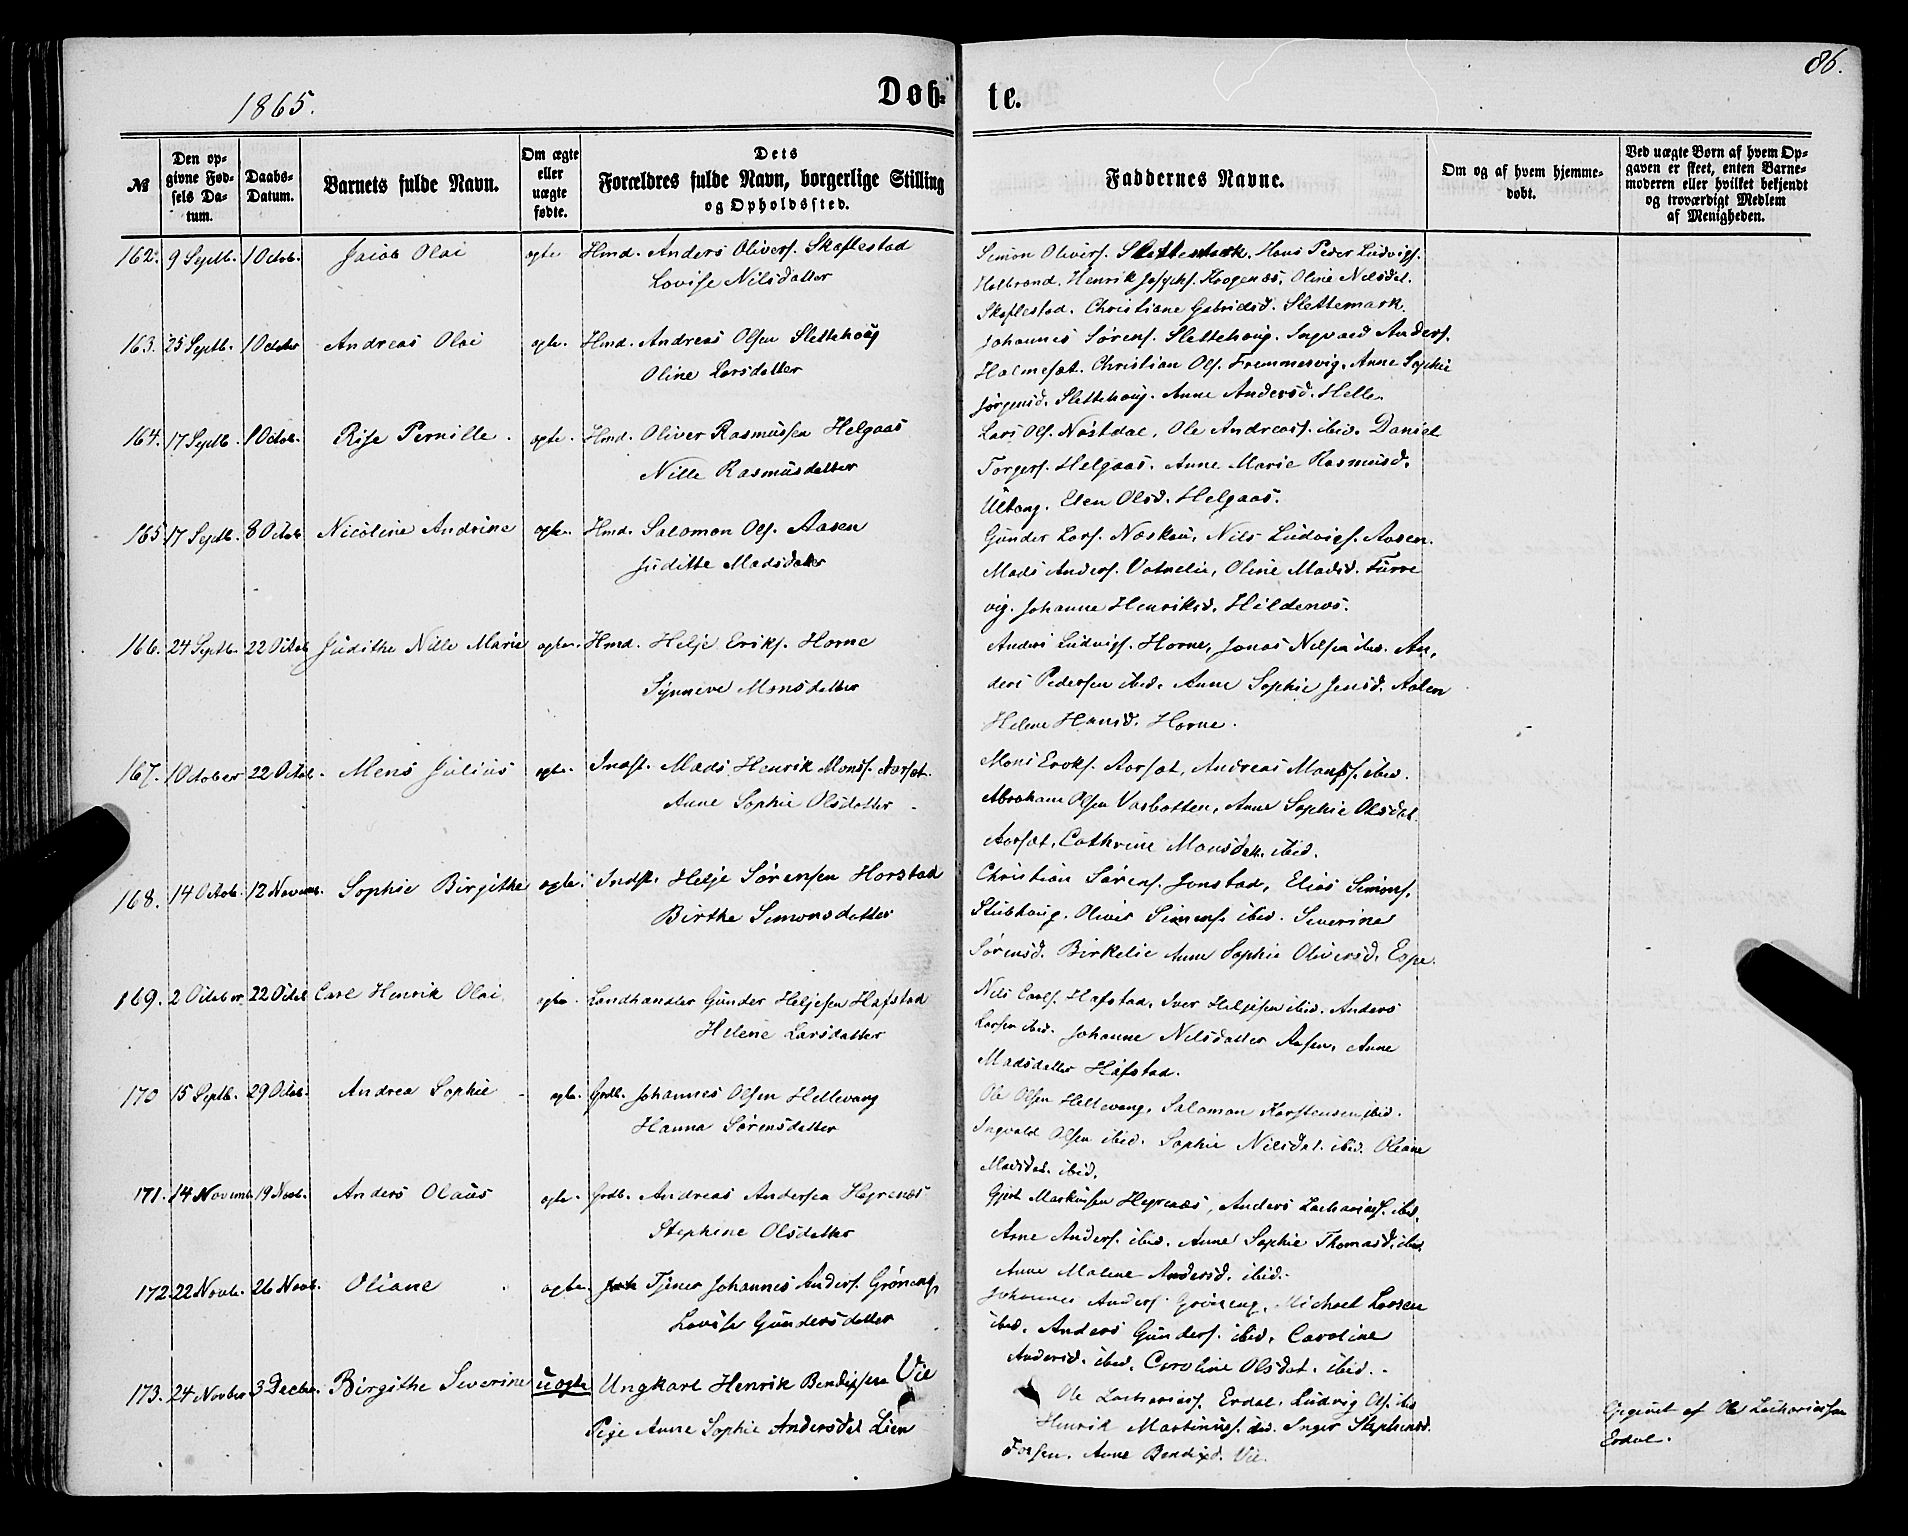 86.
1865.
Døb- te.
№
Den op-
givne Fød-
sels Da-
tum.
Daabs-
Datum.
Barnets fulde Navn.
Om ægte
eller
uægte
fødte.
Dets
Forældres fulde Navn, borgerlige Stilling
og Opholdssted.
Faddernes Navne.
Om og af hvem hjemme-
døbt.
Ved uægte Børn af hvem Op-
gaven er skeet, enten Barne-
moderen eller hvilket bekjendt
og troværdigt Medlem
af Menigheden.
162. 9 Septb. 1 Octob. Jacob Olai ægte Hmd. Anders Olivers. Skaflestad
Lovise Nilsdatter
Simon Olivers. Slettemark. Hans Peder Ludvigs.
Holbrand. Henrik Josephs. Krogenæs, Oline Nilsdat.
Skaflestad. Christiane Gabrielsd. Slettemark.
163. 25 Septb. 1 October Andreas Olai ægte. Hmd. Andreas Olsen Slettehoug
Oline Larsdatter
Johannes Sørens. Slettehoug. Ingvald Anders.
Holmesæt. Christian Ols. Fremmersvig. Anne Sophie
Jørgensd. Slettehoug. Anne Andersd. Helle.
164. 17 Septb. 1 Octob. Rise Pernille. ægte. Hmd. Oliver Rasmussen Helgaas
Nille Rasmusdatter
Lars Ols. Nøstdal, Ole Andreass. ibid. Daniel
Torgers. Helgaas. Anne Marie Rasmusd.
Ulvang. Elen Olsd. Helgaas.
165 17 Septb. 8 Octob. Nicoline Andrine ægte. Hmd. Salomon Ols. Aasen
Juditte Madsdatter
Gunder Lars. Næskau, Nils Ludvigs. Aasen.
Mads Anders. Vatnelie, Oline Madsd. Furre
vig. Johanne Henriksd. Hildenæs.
166. 24 Septb. 22 Octob. Judithe Nille Marie ægte. Hmd. Helje Eriks. Horne
Synneve Monsdatter
Anders Ludvigs. Horne, Jonas Nilsen ibid. An,
ders Pedersen ibid. Anne Sophie Jensd. Aasen
Helene Hansd. Horne.
167. 1 October 22 Octob. Mens Julius ægte. Indst. Mads Henrik Monss. Aarsæt.
Anne Sophie Olsdatter
Mons Eriks. Aarsæt, Andreas Monss. ibid.
Abraham Olsen Vasbotten, Anne Sophie Olsdat.
Aarsæt, Cathrine Monsdat. ibid.
168. 14 Octob. 12 Novemb. Sophie Birgithe ægte. Indst. Helje Sørensen Horstad
Birthe Simonsdatter
Christian Sørens. Jonstad, Elias Simons.
Stubhoug. Oliver Simons. ibid. Severine
Sørensd. Birkelie Anne Sophie Oliversd. Espe.
169. 2 October. 22 Octob Carl Henrik Olai ægte. Landhandler Gunder Heljesen Hafstad
Helene Larsdatter
Nils Carls. Hafstad, Iver Heljesen ibid. Anders
Larsen ibid. Johanne Nilsdatter Aasen, Anne
Madsdatter Hafstad.
170 15 Septb. 29 Octob. Andrea Sophie ægte. Grdb. Johannes Olsen Hellevang
Hanna Sørensdatter
Ole Olsen Hellevang, Salomon Karstensen ibid.
Ingvald Olsen ibid. Sophie Nilsdat. ibid. Oliane
Madsdat. ibid.
171. 14 Novemb. 19 Novb. Anders Olaus ægte. Grdb. Andreas Andersen Hegrenæs
Stephine Olsdatter
Gjert Markussen Hegrenæs, Anders Zachariass. ibid.
Arne Anders. ibid. Anne Sophie Thomasd. ibid.
Anne Malene Andersd. ibid.
172 22 Novb. 26 Novb. Oliane ægte Tjener Johannes Anders. Grøneng
Lovise Gundersdatter
Johannes Anders. Grøneng, Michael Larsen
ibid. Anders Gunders. ibid. Caroline
Andersd. ibid. Caroline Olsdat. ibid.
173. 24 Novber. 3 Decbr. Birgithe Severine uægte Ungkarl Henrik Bendixsen Vie
Pige Anne Sophie Andersdat Lien
Ole Zachariass. Erdal. Ludvig Ols. ibid
Henrik Martinuss. ibid. Inger Stephensd.
Forsen. Anne Bendixd. Vie.
Opgivet af Ole Zachariassen
Erdal.